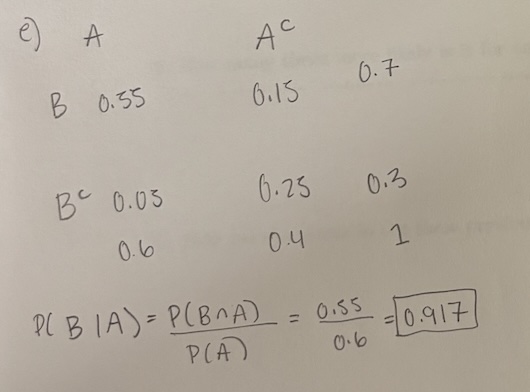 e) A A^C
B 0.55 0.15 0.7
B^C 0.05 0.25 0.3
0.6 0.4 1
P(B|A) = P(B∩A) / P(A) = 0.55 / 0.6 = 0.917